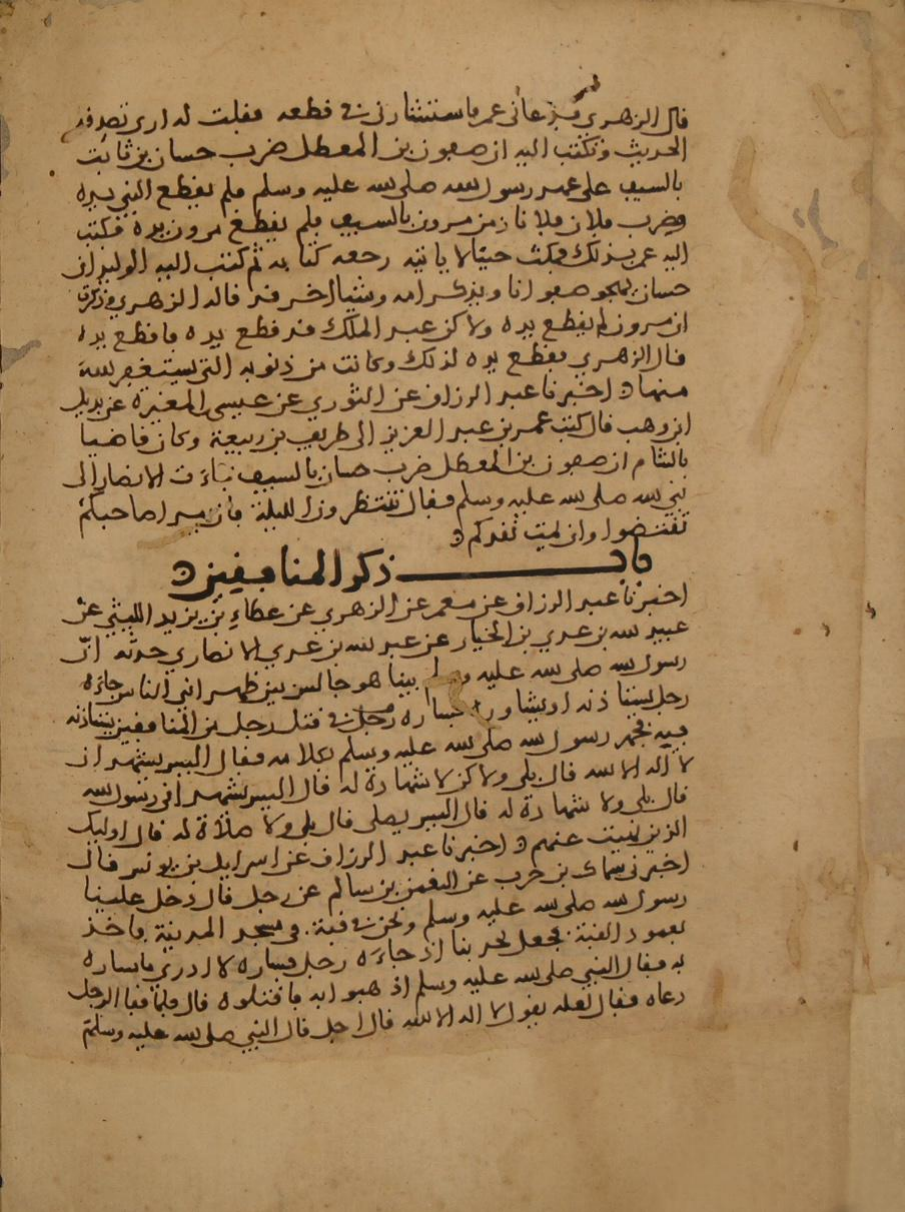 قال الزهري فدعاني عمر فاستشارني في قطعه فقلت له ارى تصدقه
الحديث وتكتب اليه ان صفون بن المعطل ضرب حسان بن ثابت
بالسيف على عهد رسول الله صلى الله عليه وسلم فلم يقطع النبي يده
وضرب فلان فلانا زمن مرون بالسيف فلم يقطع مرون يده فكتب
اليه عمر بذلك فمكث حينا لا ياتيه رجعه كتابه ثم كتب اليه الوليد ان
حسان يهجو صفوانا ويذكر امه وشيا اخر قد قاله الزهري وذكرت
ان مرون لم يقطع يده ولاكن عبد الملك قد قطع يده فاقطع يده
قال الزهري فقطع يده لذلك وكانت من ذنوبه التي يستغفر الله
منها اخبرنا عبد الرزاق عن الثوري عن عيسى المغيرة عن بديل
ابن وهب قال كتب عمر بن عبد العزيز الى طريف بن ربيعة وكان قاضيا
بالشام ان صفون بن المعطل ضرب حسان بالسيف فجاءت الانصار الى
نبي الله صلى الله عليه وسلم فقال تنتظرون الليلة فان يبرا صاحبكم
تقتضوا وان يمت نقدكم
باب ذكر المنافقين
اخبرنا عبد الرزاق عن معمر عن الزهري عن عطاء بن يزيد الليثي عن
عبيد الله بن عدي بن الخيار عن عبد الله بن عدي الانصاري حدثه ان
رسول الله صلى الله عليه وسلم بينا هو جالس بين ظهراني الناس جاءه
رجل يستاذنه او يشاوره يساره في قتل رجل من المنافقين يستاذنه
فيه فجهر رسول الله صلى الله عليه وسلم بكلامه فقال اليس يشهد ان
لا اله الا الله قال بلى ولاكن لا شهادة له قال اليس يشهد اني رسول الله
قال بلى ولا شهادة له قال اليس يصلي قال بلى ولا صلاة له قال اوليك
الذين نهيت عنهم اخبرنا عبد الرزاق عن اسرايل بن يونس قال
اخبرني سماك بن حرب عن النعمن بن سالم عن رجل قال دخل علينا
رسول الله صلى الله عليه وسلم ونحن في قبة في مسجد المدينة فاخذ
بعمود القبة فجعل يحدثنا اذ جاءه رجل فساره لا ادري ما ساره
به فقال النبي صلى الله عليه وسلم اذهبوا به فاقتلوه قال فلما قفا الرجل
دعاه فقال لعله يقول لا اله الا الله قال اجل قال النبي صلى الله عليه وسلم